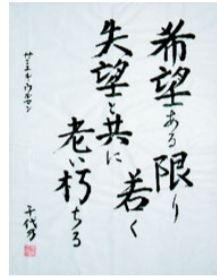 希望ある限り
若く
失望と共に
老い朽ちる
サミエル・ウルマン
千代乃